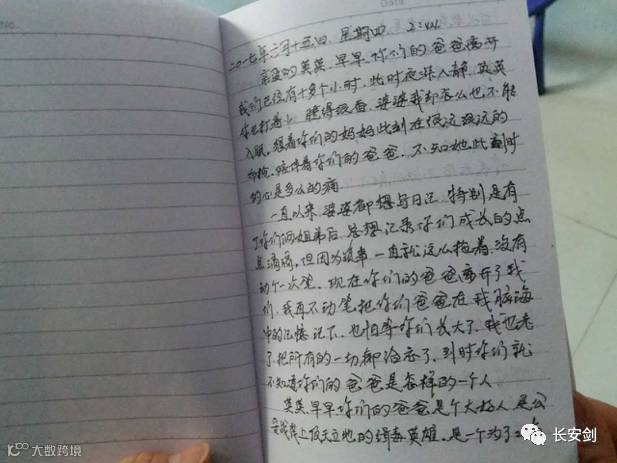 Date
二0一七年六月十五日 星期四 2:44
亲爱的英英、早早、你们的爸爸离开
我们已经有十多个小时,此时夜深人静,英英
你已打着卜 睡得很香,婆婆我却怎么也不能
入眠,想着你们的妈妈此刻在很远很远的
陪伴着你们的爸爸,不知她此刻
的心是多么的痛
一直以来,婆婆都想写日记,特别是有
了你们俩姐弟后,总想记录你们成长的点
点滴滴,但因为琐事一直就这么拖着,没有
动个一次笔,现在你们的爸爸离开了我
们,我再不动笔把你们爸爸在我脑海
中的记忆记下,也怕等你们长大了,我也老
了,把所有的一切都淡忘了,到时你们就
不知道你们的爸爸是怎样的一个人。
英英、早早你们的爸爸是个大好人,是公
安战线上顶天立地的缉毒英雄,是一个为了
大数跨境
长安剑